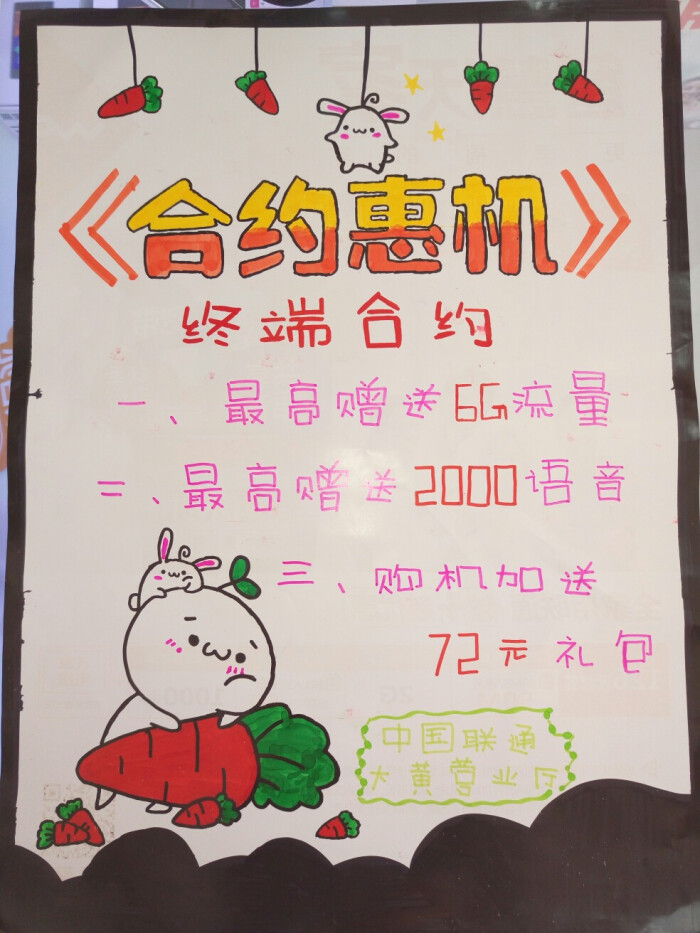 《合约惠机》
终端合约
一、最高赠送6G流量
二、最高赠送2000语音
三、购机加送
72元礼包
中国联通
大黄营业厅